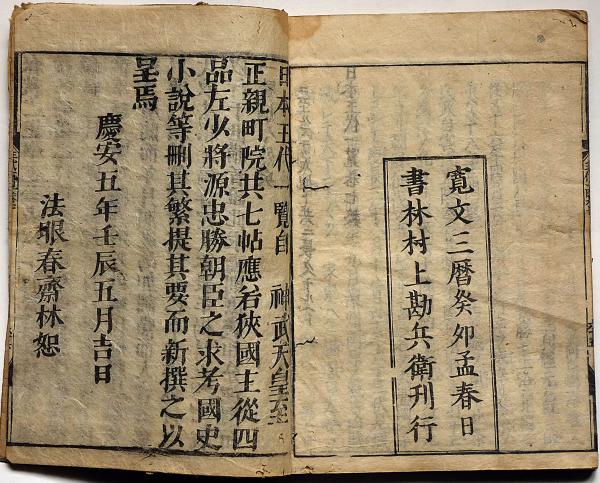 寛文三暦癸夘孟春日
書林村上勘兵衛刊行
日本王代一覧自　神武天皇至
正親町院共七帖應若狹國主從四
品左少將源忠勝朝臣之求考國史
小說等刪其繁提其要而新撰之以
呈焉
慶安五年壬辰五月吉日
法眼春齋林恕